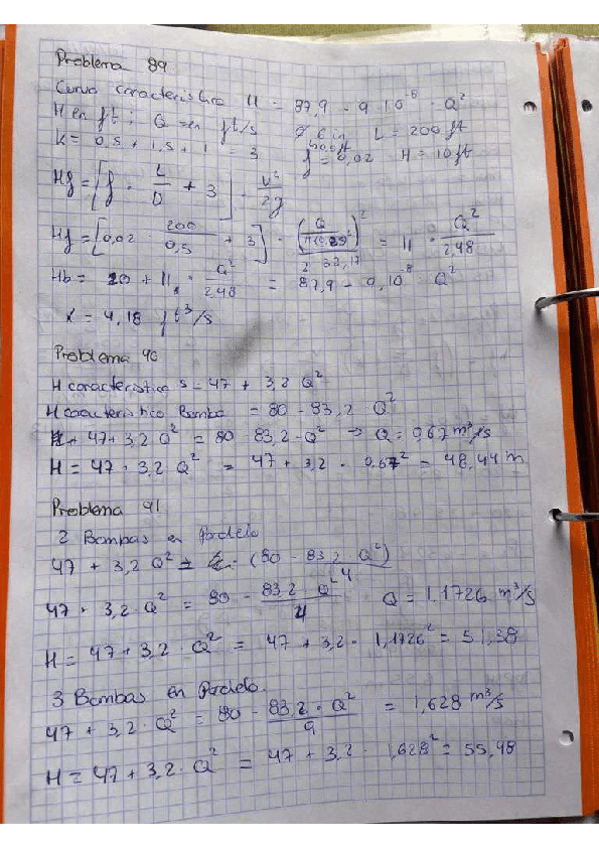 Problema 89
Curva caracteristica H = 87,9 - 9 10⁻⁸ · Q²
H en ft ; Q = en ft/s L = 200 ft
K = 0,5 + 1,5 + 1 = 3 f = 0,02 H = 10 ft
Hf = [f · L/D + 3] · V²/2g
Hf = [0,02 · 200/0,5 + 3] · = 11 · Q²/2,48
Hb = 20 + 11 · Q²/2,48 = 87,9 - 9,10⁻⁸ · Q²
= 4,18 ft³/s
Problema 90
H caracteristica s = 47 + 3,2 Q²
H caracteristico Bomba = 80 - 83,2 Q²
47 + 3,2 Q² = 80 - 83,2 · Q² ⇒ Q = 0,67 m³/s
H = 47 + 3,2 Q² = 47 + 3,2 · 0,67² = 48,44 m
Problema 91
2 Bombas en Paralelo
47 + 3,2 Q² = (80 - 83,2 Q²)
47 + 3,2 · Q² = 80 - 83,2 · Q²/4 Q = 1,1726 m³/s
H = 47 + 3,2 · Q² = 47 + 3,2 · 1,1726² = 51,38
3 Bombas en Paralelo.
47 + 3,2 · Q² = 80 - 83,2 · Q²/9 = 1,628 m³/s
H = 47 + 3,2 · Q² = 47 + 3,2 · 1,628² = 55,48